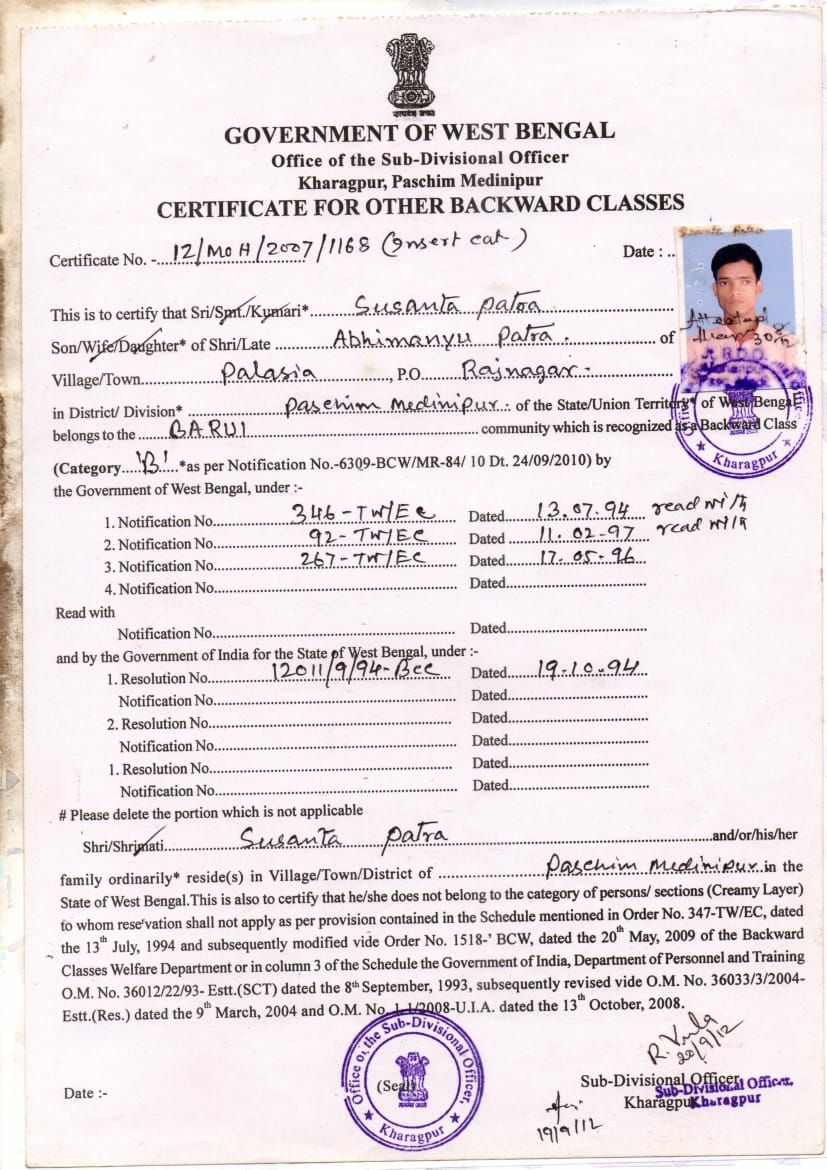 सत्यमेव जयते
GOVERNMENT OF WEST BENGAL
Office of the Sub-Divisional Officer
Kharagpur, Paschim Medinipur
CERTIFICATE FOR OTHER BACKWARD CLASSES
Certificate No. -.12/MOH/2007/1168 (Insert cat) Date : ..
This is to certify that Sri/Smt./Kumari* Susanta Patra
Son/Wife/Daughter* of Shri/Late Abhimanyu Patra. of
Village/Town Palasia, P.O. Rajnagar.
in District/ Division* Paschim Medinipur. of the State/Union Territory* of West Bengal
belongs to the BARUI community which is recognized as a Backward Class
(Category 'B' *as per Notification No.-6309-BCW/MR-84/ 10 Dt. 24/09/2010) by
the Government of West Bengal, under :-
1. Notification No. 346-TW/EC Dated 13.07.94 read with
2. Notification No. 92-TW/EC Dated 11.02-97 read with
3. Notification No. 267-TW/EC Dated 17.05-96
4. Notification No. Dated
Read with
Notification No. Dated
and by the Government of India for the State of West Bengal, under :-
1. Resolution No. 12011/9/94-Bcc Dated 19-10-94
Notification No. Dated
2. Resolution No. Dated
Notification No. Dated
1. Resolution No. Dated
Notification No. Dated
# Please delete the portion which is not applicable
Shri/Shrimati Susanta Patra and/or/his/her
family ordinarily* reside(s) in Village/Town/District of Paschim Medinipur in the
State of West Bengal.This is also to certify that he/she does not belong to the category of persons/ sections (Creamy Layer)
to whom reservation shall not apply as per provision contained in the Schedule mentioned in Order No. 347-TW/EC, dated
the 13th July, 1994 and subsequently modified vide Order No. 1518-' BCW, dated the 20th May, 2009 of the Backward
Classes Welfare Department or in column 3 of the Schedule the Government of India, Department of Personnel and Training
O.M. No. 36012/22/93- Estt.(SCT) dated the 8th September, 1993, subsequently revised vide O.M. No. 36033/3/2004-
Estt.(Res.) dated the 9th March, 2004 and O.M. No. 1-1/2008-U.I.A. dated the 13th October, 2008.
20/9/12
Office of the Sub-Divisional Officer,
Kharagpur
(Seal)
Date :-
Sub-Divisional Officer
Kharagpur
Sub-Divisional Officer,
Kharagpur
19/9/12
Kharagpur